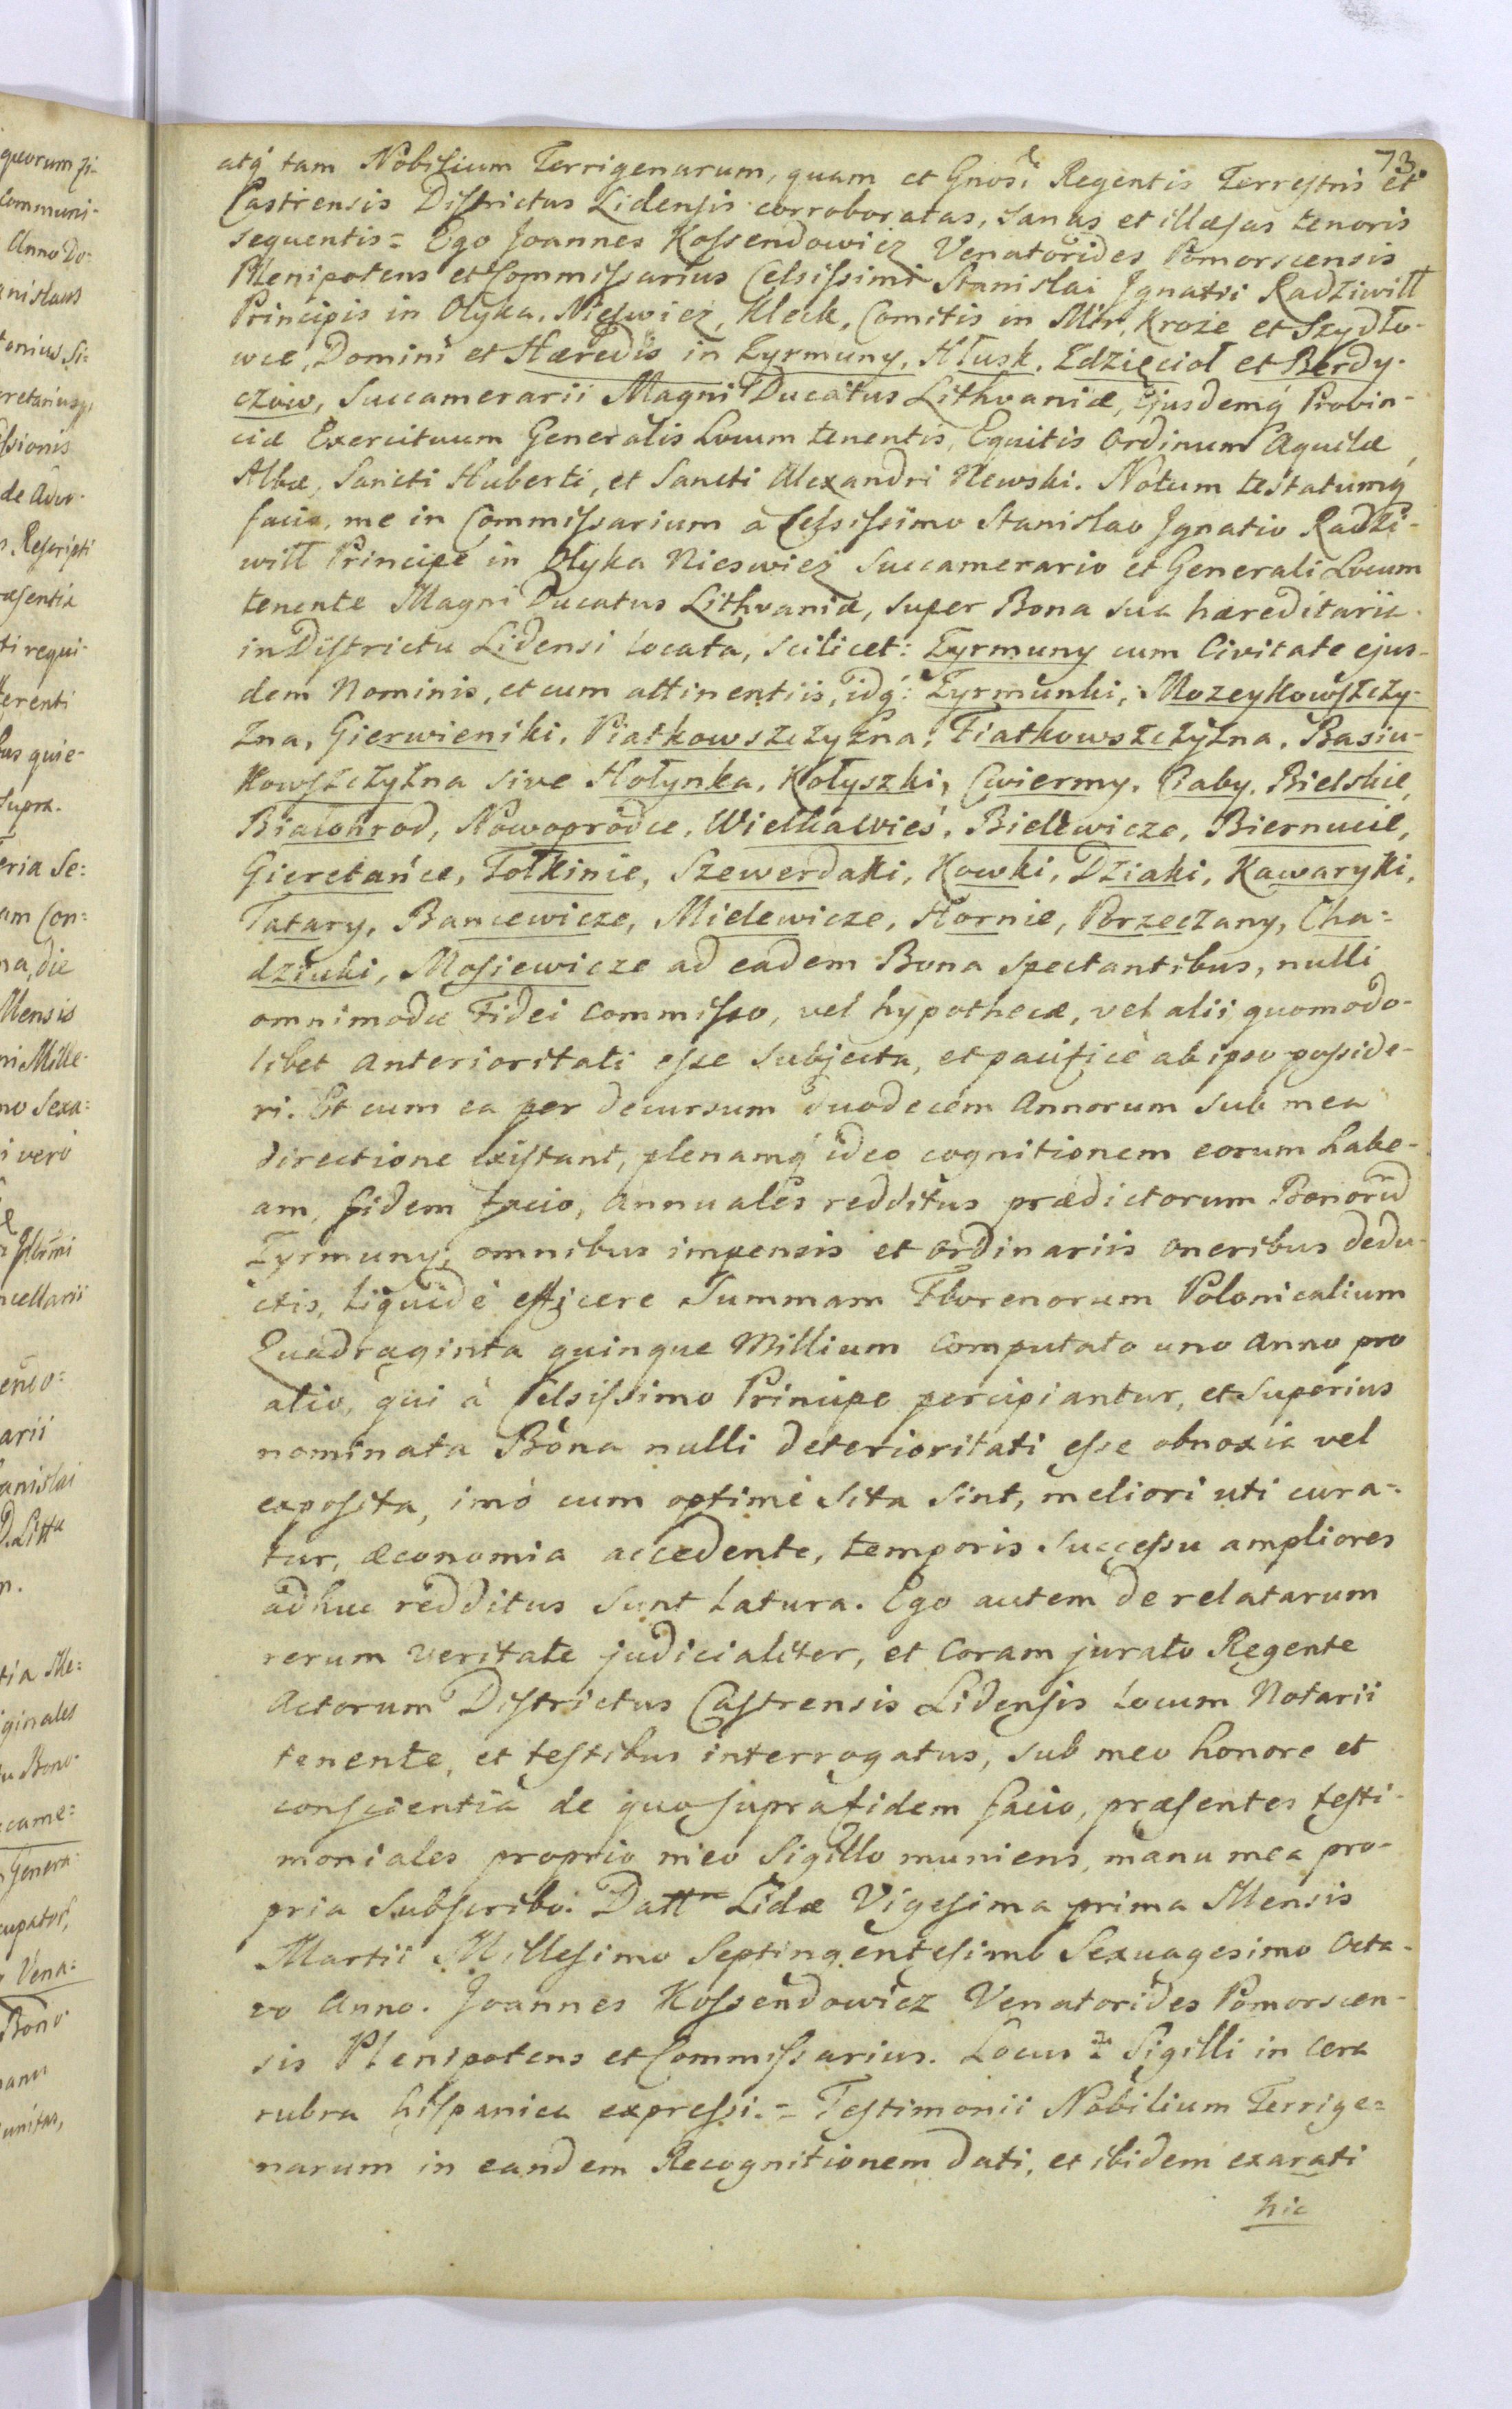 73
atq́ tam Nobilium Terrigenarum, quam et Gnosi Regentis Terrestris et
Castrensis Districtus Lidensis corroboratas, sanas et illæsas tenoris
sequentis = Ego Joannes Kossendowicz Venatorides Pomorscensis
Plenipotens et Commissarius Celsissimi Stanislai Jgnatii Radziwiłł
Principis in Olyka, Nieswiez, Kleck, Comitis in Mir, Kroże et Szydło-
wce, Domini et Hæredis in Żyrmuny, Hłusk, Zdzięcioł et Berdy-
czow, Succamerarii Magni Ducatus Lithvaniæ, Ejusdemq́ Provin-
ciæ Exercituum Generalis Locum tenentis, Equitis Ordinum Aquilæ
Albæ, Sancti Huberti, et Sancti Alexandri Newski. Notum testatumq́
facio, me in Commissarium a Celsissimo Stanislao Jgnatio Radzi-
wiłł Principe in Olyka Nieswiez Succamerario et Generali Locum
tenente Magni Ducatus Lithvaniæ, super Bona sua hæreditaria
in Districtu Lidensi locata, scilicet: Żyrmuny cum Civitate ejus-
dem Nominis, et cum attinentiis, idq́: Żyrmunki, Mozeykowszczy-
zna, Gierwieniki, Piatkowszczyzna, Fiatkowszczyzna, Basiu-
kowszczyzna sive Hołynka, Kołyszki, Cwiermy, Ciaby, Bielskie,
Białohrod, Nowoprodce, Wielkawieś, Bielewicze, Biernucie,
Gieretańce, Tołkinie, Szewerdaki, Kowki, Dziaki, Kawaryki,
Tatary, Bancewicze, Mielewicze, Hornie, Porzeczany, Cha=
dziuki, Mosiewicze ad eadem Bona spectantibus, nulli
omnimodæ Fidei Commisso, vel hypothecæ, vel alii quomodo-
libet anterioritati esse subjecta, et pacificè ab ipso posside-
ri. Et cum ea per decursum duodecem Annorum sub mea
directione existant, plenamq́ ideo cognitionem eorum habe-
am, fidem facio, annuales redditus prædictorum Bonorū
Żyrmuny, omnibus impensis et ordinariis oneribus dedu-
ctis, liquidè efficere Summam Florenorum Polonicalium
Quadraginta quinque Millium computato uno Anno pro
alio, qui à Celsissimo Principe percipiantur, et superius
nominata Bona nulli deterioritati esse obnoxia vel
exposita, imò cum optimè sita sint, meliori uti cura=
tur, œconomia accedente, temporis successu ampliores
adhuc redditus sunt latura. Ego autem de relatarum
rerum veritate judicialiter, et coram jurato Regente
Actorum Districtus Castrensis Lidensis locum Notarii
tenente, et testibus interrogatus, sub meo honore et
conscientia de quo supra fidem facio, præsentes testi-
moniales proprio meo Sigillo muniens, manu mea pro-
pria Subscribo. Dattm Lidæ Vigesima prima Mensis
Martii Millesimo Septingentesimo Sexuagesimo Octa-
vo Anno. Joannes Kossendowicz Venatorides Pomorscen-
sis Plenipotens et Commissarius. Locus Sigilli in cera
rubra hispanica expressi. = Testimonii Nobilium Terrige=
narum in eandem Recognitionem dati, et ibidem exarati
hic